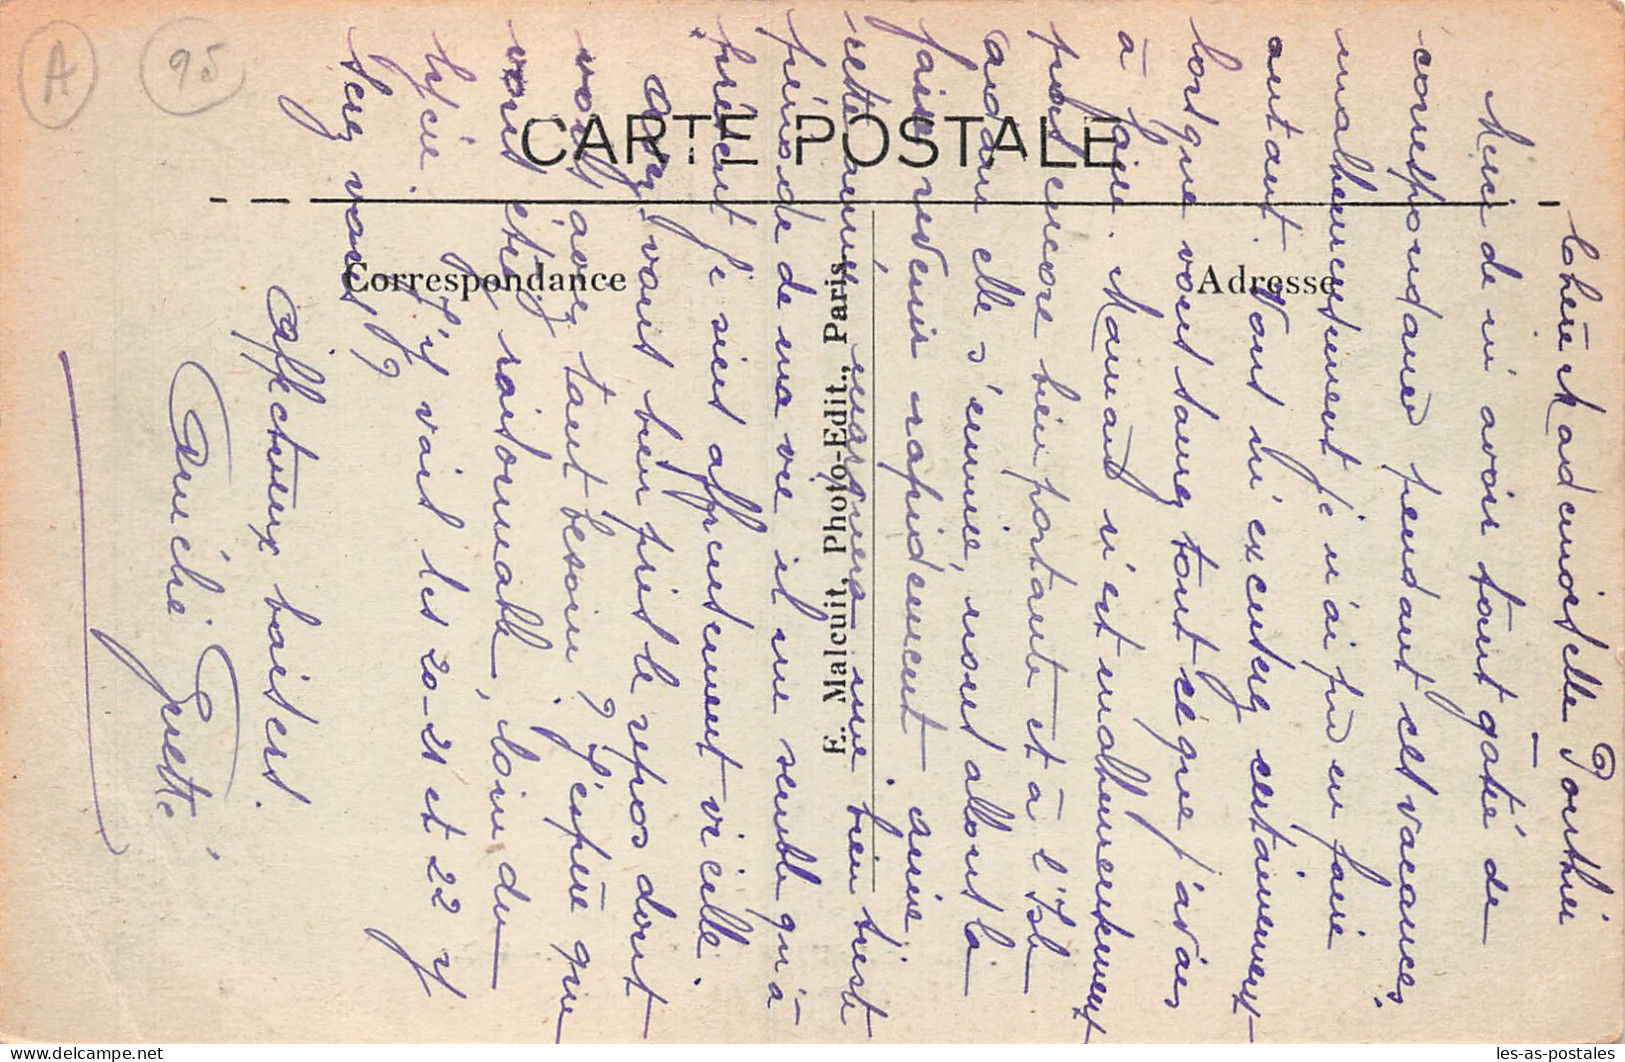 A
95
CARTE POSTALE
Correspondance
Adresse
E. Malcuit, Photo-Edit., Paris
Chère Mademoiselle Pouthier
Merci de m'avoir tant gâtée de
correspondances pendant ces vacances,
malheureusement je n'ai pu en faire
autant. Vous m'excusez certainement
lorsque vous saurez tout ce que j'avais
à faire. Maman n'est malheureusement
pas encore bien portante et à l'Isle
Adam elle s'ennuie, nous allons la
faire revenir rapidement.
cette année marquera une bien triste
période de ma vie il me semble qu'à
présent je suis affreusement vieille.
Avez vous bien pris le repos dont
vous avez tant besoin ? J'espère que
vous étiez raisonnable, loin du
lycée.
J'y vais les 20-21 et 22 y
serez vous ?
Affectueux baisers.
les-as-postales